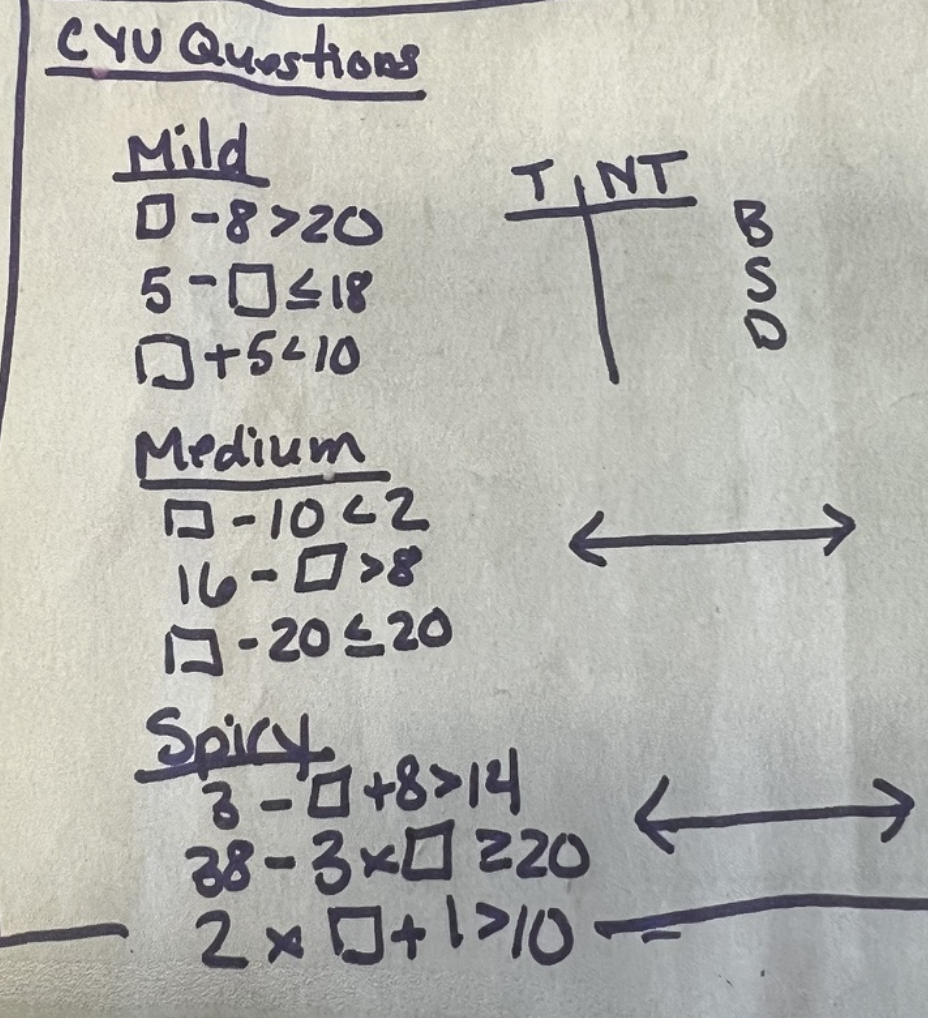 CYU Questions
Mild
□ - 8 > 20
5 - □ ≤ 18
□ + 5 < 10
T NT
B
S
D
Medium
□ - 10 < 2
16 - □ > 8
□ - 20 ≤ 20
Spicy
3 - □ + 8 > 14
38 - 3 × □ ≥ 20
2 × □ + 1 > 10